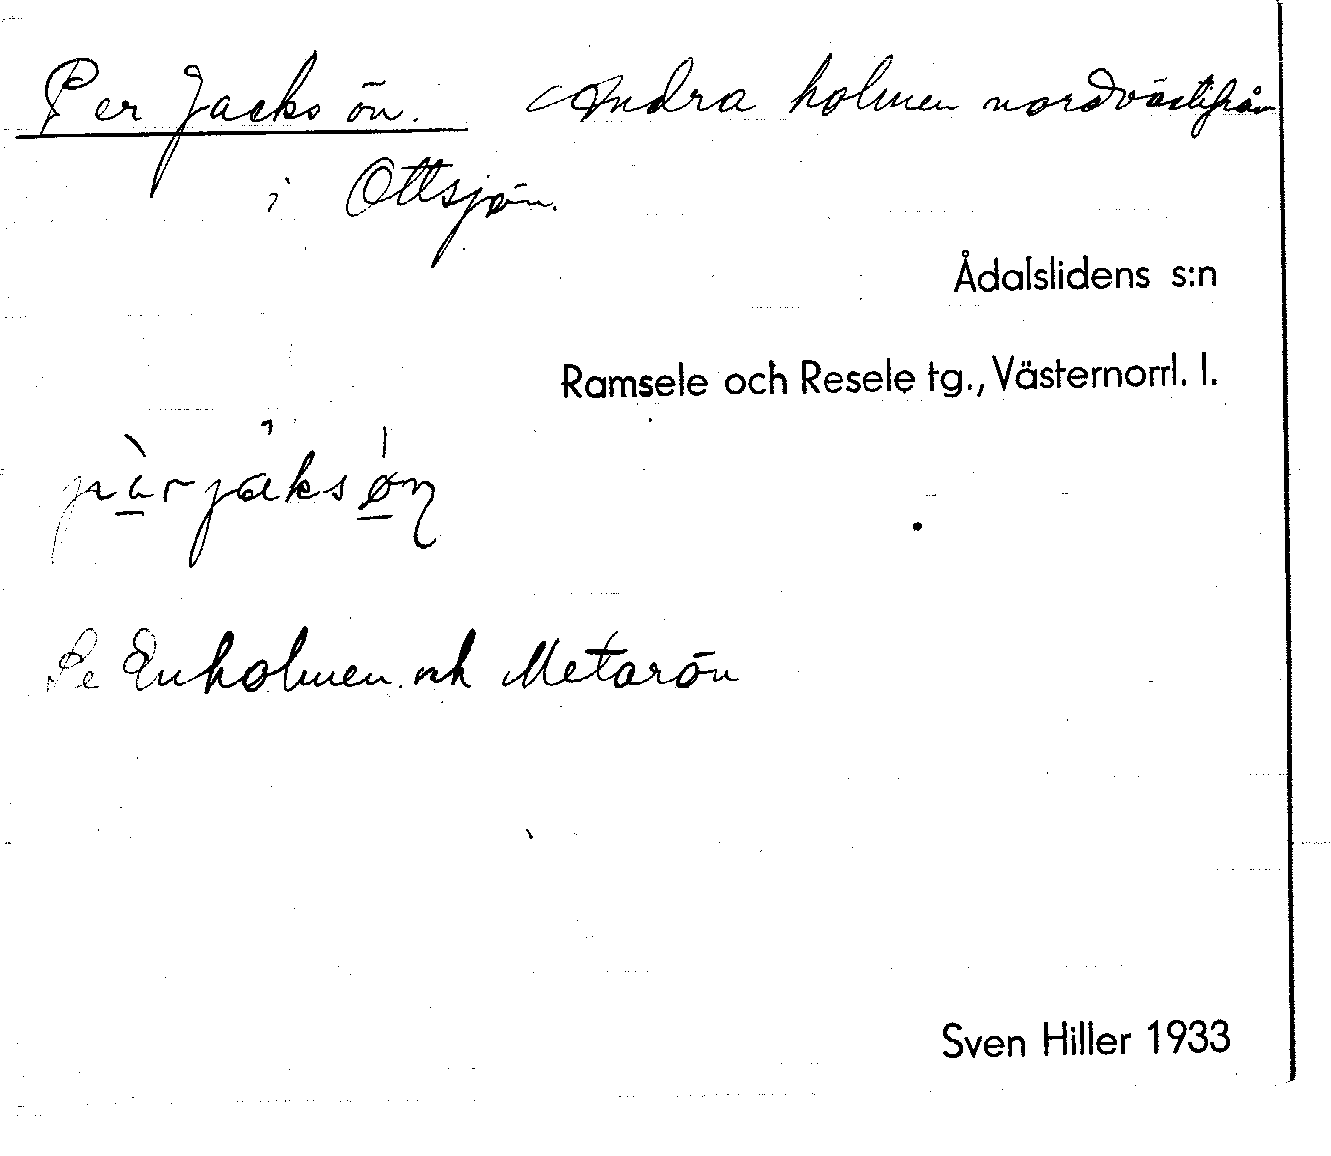 Per Jacks ön. Andra holmen nordvästifrån
i Ottsjön.
Ådalslidens s:n
Ramsele och Resele tg., Västernorrl. l.
Se Enholmen och Metarön
Sven Hiller 1933